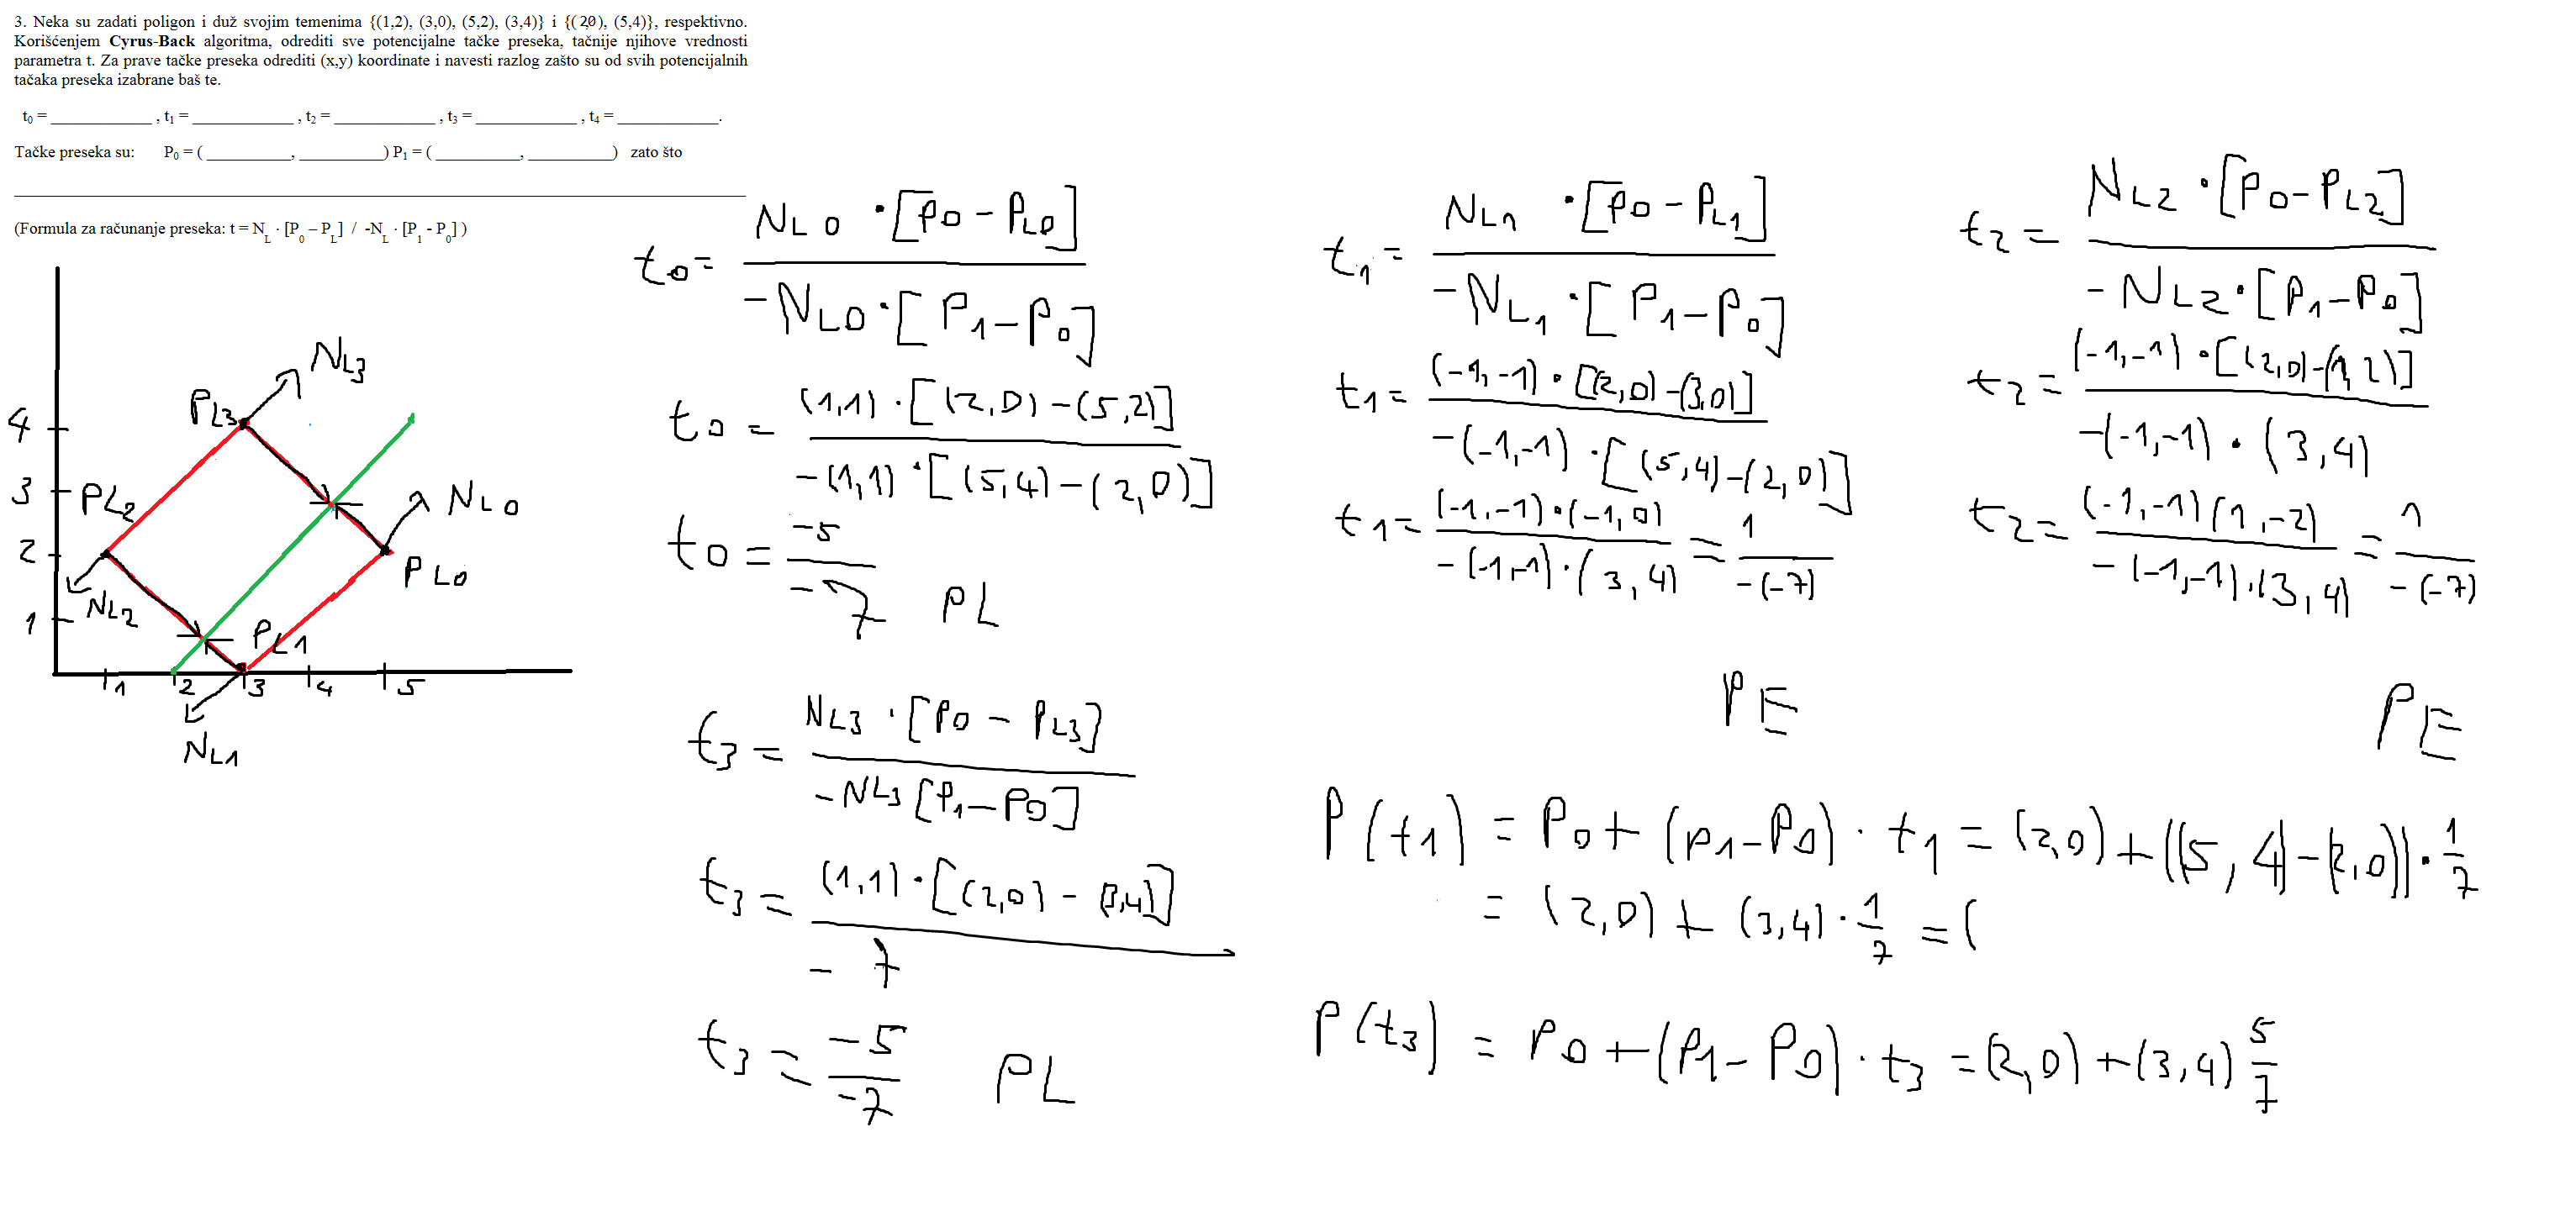 3. Neka su zadati poligon i duž svojim temenima {(1,2), (3,0), (5,2), (3,4)} i {(2,0), (5,4)}, respektivno.
Korišćenjem Cyrus-Back algoritma, odrediti sve potencijalne tačke preseka, tačnije njihove vrednosti
parametra t. Za prave tačke preseka odrediti (x,y) koordinate i navesti razlog zašto su od svih potencijalnih
tačaka preseka izabrane baš te.
t0 = ____________ , t1 = ____________ , t2 = ____________ , t3 = ____________ , t4 = ____________.
Tačke preseka su: P0 = ( __________, __________) P1 = ( __________, __________) zato što
(Formula za računanje preseka: t = NL · [P0 – PL] / -NL · [P1 - P0] )
4
3
2
1
1 2 3 4 5
NL3
PL3
PL2
NL0
PL0
NL2
PL1
NL1
t0 = NL0 · [P0 - PL0] / -NL0 · [P1 - P0]
t0 = (1,1) · [(2,0) - (5,2)] / -(1,1) · [(5,4) - (2,0)]
t0 = -5 / -7 PL
t3 = NL3 · [P0 - PL3] / -NL3 [P1 - P0]
t3 = (1,1) · [(2,0) - (3,4)] / -7
t3 = -5 / -7 PL
t1 = NL1 · [P0 - PL1] / -NL1 · [P1 - P0]
t1 = (-1,-1) · [(2,0) - (3,0)] / -(-1,-1) · [(5,4) - (2,0)]
t1 = (-1,-1) · (-1,0) / -(-1,-1) · (3,4) = 1 / -(-7)
PE
t2 = NL2 · [P0 - PL2] / -NL2 · [P1 - P0]
t2 = (-1,-1) · [(2,0) - (1,2)] / -(-1,-1) · (3,4)
t2 = (-1,-1) (1,-2) / -(-1,-1) · (3,4) = 1 / -(-7)
PE
P(t1) = P0 + (P1 - P0) · t1 = (2,0) + ((5,4) - (2,0)) · 1/7
= (2,0) + (3,4) · 1/7 = (
P(t3) = P0 + (P1 - P0) · t3 = (2,0) + (3,4) 5/7